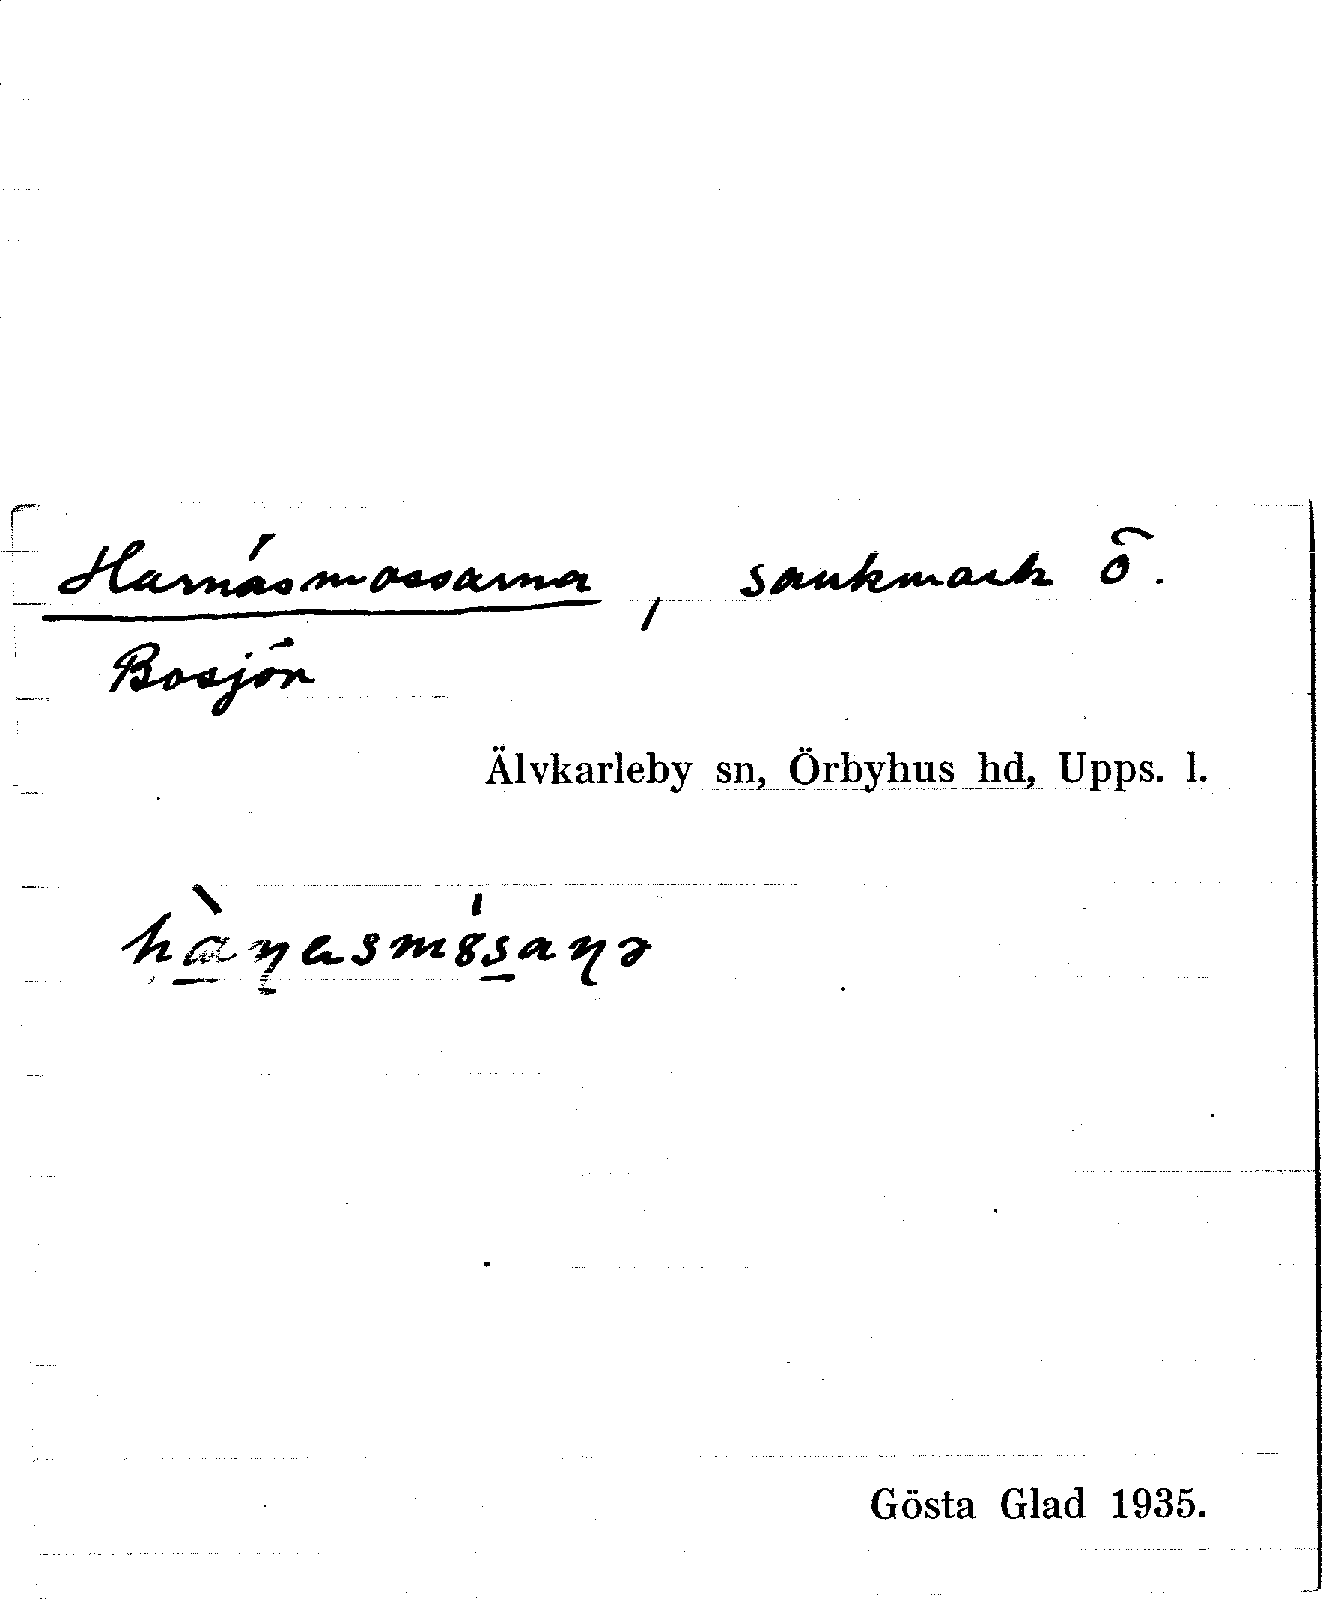 Harnäsmossarna, sankmark ö.
Bosjön
Älvkarleby sn, Örbyhus hd, Upps. l.
Gösta Glad 1935.